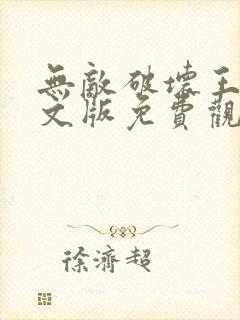 無敵破壞王
文版免費觀
徐濟超